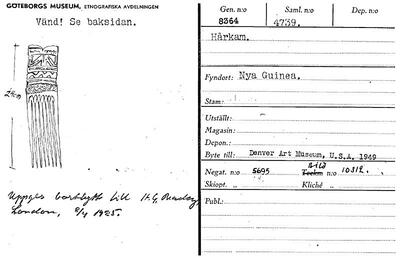 GÖTEBORGS MUSEUM, ETNOGRAFISKA AVDELNINGEN
Vänd! Se baksidan.
Uppges bortbytt till H.G. Beasley,
London, 1925.
Gen. n:o
8364
Saml. n:o
4739.
Dep. n:o
Hårkam.
Fyndort: Nya Guinea.
Stam:
Utställt:
Magasin:
Depon.:
Byte till: Denver Art Museum, U.S.A. 1949
Negat. n:o 5695
n:o 10312.
Skiopt. „
Kliché „
Publ.: